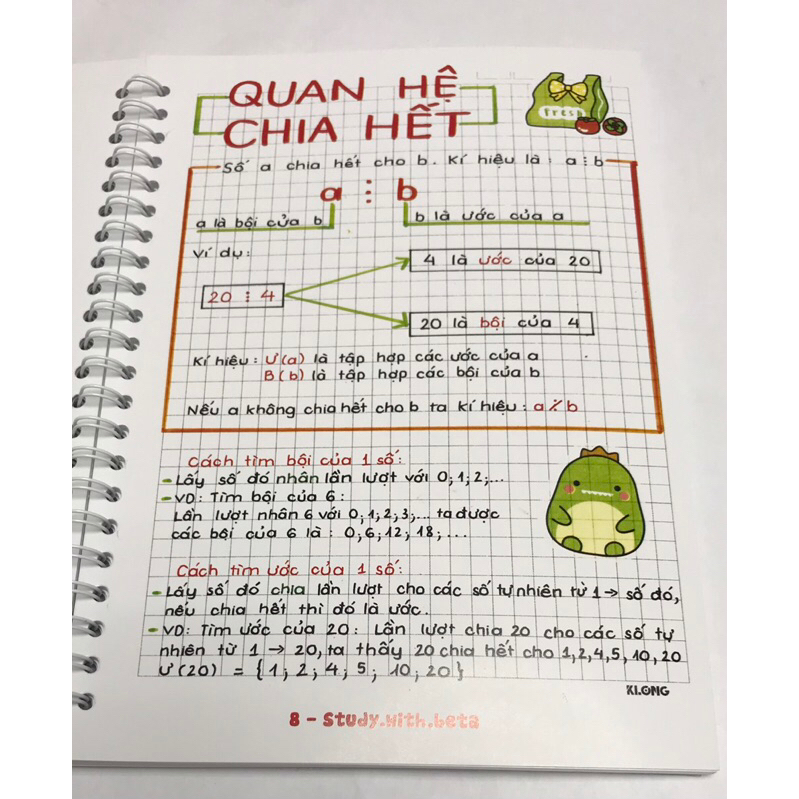 QUAN HỆ
CHIA HẾT
Fresh
Số a chia hết cho b. Kí hiệu là: a ⋮ b
a ⋮ b
a là bội của b
b là ước của a
Ví dụ:
4 là ước của 20
20 ⋮ 4
20 là bội của 4
Kí hiệu: Ư(a) là tập hợp các ước của a
B(b) là tập hợp các bội của b
Nếu a không chia hết cho b ta kí hiệu: a ⋮̸ b
Cách tìm bội của 1 số:
- Lấy số đó nhân lần lượt với 0; 1; 2;...
- VD: Tìm bội của 6:
Lần lượt nhân 6 với 0; 1; 2; 3;... ta được
các bội của 6 là: 0; 6; 12; 18; ...
Cách tìm ước của 1 số:
- Lấy số đó chia lần lượt cho các số tự nhiên từ 1 → số đó,
nếu chia hết thì đó là ước.
- VD: Tìm ước của 20: Lần lượt chia 20 cho các số tự
nhiên từ 1 → 20, ta thấy 20 chia hết cho 1,2,4,5,10,20
Ư(20) = {1; 2; 4; 5; 10; 20}
KLONG
8 - Study.with.beta